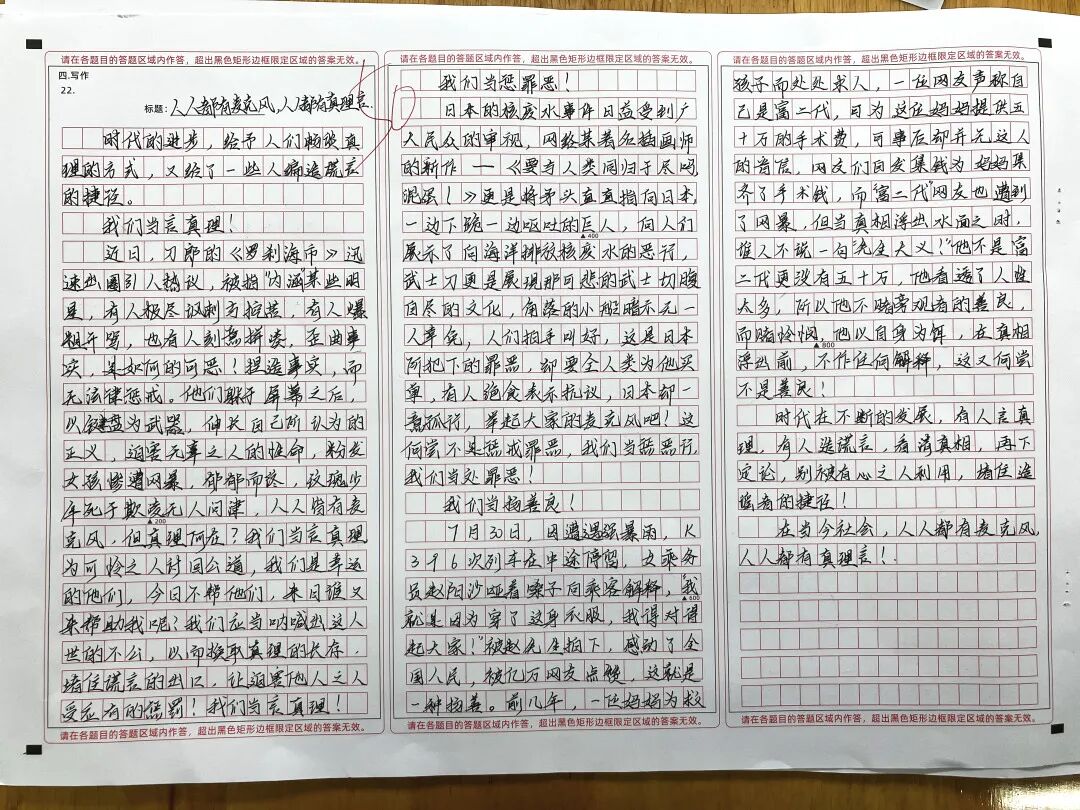 请在各题目的答题区域内作答，超出黑色矩形边框限定区域的答案无效。
四.写作
22.
标题：人人都有麦克风，人人都有真理言
时代的进步，给予人们畅谈真
理的方式，又给了一些人编造谎言
的捷径。
我们当言真理！
近日，刀郎的《罗刹海市》迅
速出圈引人热议，被指“内涵”某些明
星，有人极尽讽刺与挖苦，有人爆
粗开骂，也有人刻意拼凑，歪曲事
实，是如何的可恶！捏造事实，而
无法律惩戒。他们躲于屏幕之后，
以键盘为武器，伸长自己所认为的
正义，迫害无辜之人的性命，粉发
女孩惨遭网暴，郁郁而终，玫瑰少
年死于欺凌无人问津，人人皆有麦
▲200
克风，但真理何在？我们当言真理
为可怜之人讨回公道，我们是幸运
的他们，今日不帮他们，来日谁又
来帮助我呢？我们应当呐喊出这人
世的不公，以而换取真理的长存，
堵住谎言的出口，让迫害他人之人
受应有的惩罚！我们当言真理！
请在各题目的答题区域内作答，超出黑色矩形边框限定区域的答案无效。
请在各题目的答题区域内作答，超出黑色矩形边框限定区域的答案无效。
我们当惩罪恶！
日本的核废水事件日益受到广
大民众的审视，网络某著名插画师
的新作——《要与人类同归于尽吗，
混蛋！》更是将矛头直直指向日本，
一边下跪一边呕吐的巨人，向人们
▲400
展示了向海洋排放核废水的恶行，
武士刀更是展现那可悲的武士切腹
自尽的文化，角落的小船暗示无一
人幸免，人们拍手叫好，这是日本
所犯下的罪恶，却要全人类为他买
单，有人绝食表示抗议，日本却一
意孤行，举起大家的麦克风吧！这
何尝不是惩戒罪恶，我们当惩恶行，
我们当处罪恶！
我们当扬善良！
7月30日，因遭遇强暴雨，K
396次列车在中途停留，女乘务
员赵阳沙哑着嗓子向乘客解释，“我
▲600
就是因为穿了这身衣服，我得对得
起大家！”被赵先生拍下，感动了全
国人民，被亿万网友点赞，这就是
一种扬善。前几年，一位妈妈为救
请在各题目的答题区域内作答，超出黑色矩形边框限定区域的答案无效。
请在各题目的答题区域内作答，超出黑色矩形边框限定区域的答案无效。
孩子而处处求人，一位网友声称自
己是富二代，可为这位妈妈提供五
十万的手术费，可事后却并无这人
的音信，网友们自发集钱为妈妈集
齐了手术钱，而“富二代”网友也遭到
了网暴，但当真相浮出水面之时，
谁人不说一句“先生大义！”他不是富
二代更没有五十万，他看透了人性
太多，所以他不赌旁观者的善良，
而赌怜悯，他以自身为饵，在真相
▲800
浮出前，不作任何解释，这又何尝
不是善良！
时代在不断的发展，有人言真
理，有人造谎言，看清真相，再下
定论，别被有心之人利用，堵住造
谣者的捷径！
在当今社会，人人都有麦克风，
人人都有真理言！！
请在各题目的答题区域内作答，超出黑色矩形边框限定区域的答案无效。